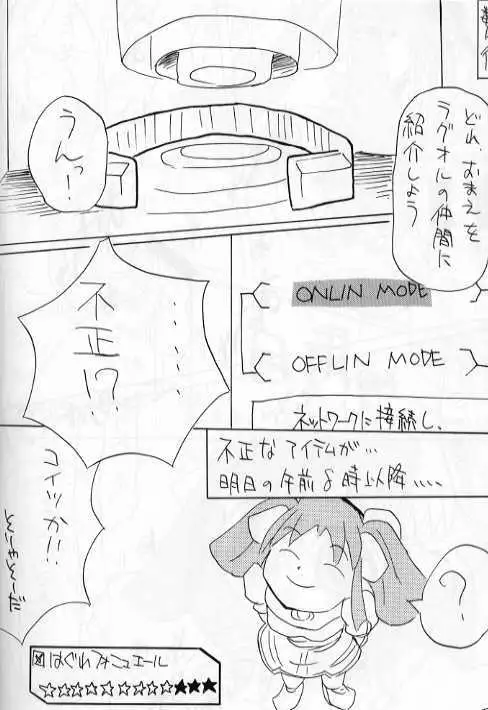 どれ、おまえを
ラグオルの仲間に
紹介しよう
うんっ!
ONLIN MODE
OFFLIN MODE
ネットワークに接続し、
……
不正!?
不正なアイテムが…
明日の午前8時以降、…
?
コイツか!!
はぐれフォニュエール
☆☆☆☆☆☆☆☆☆★★★